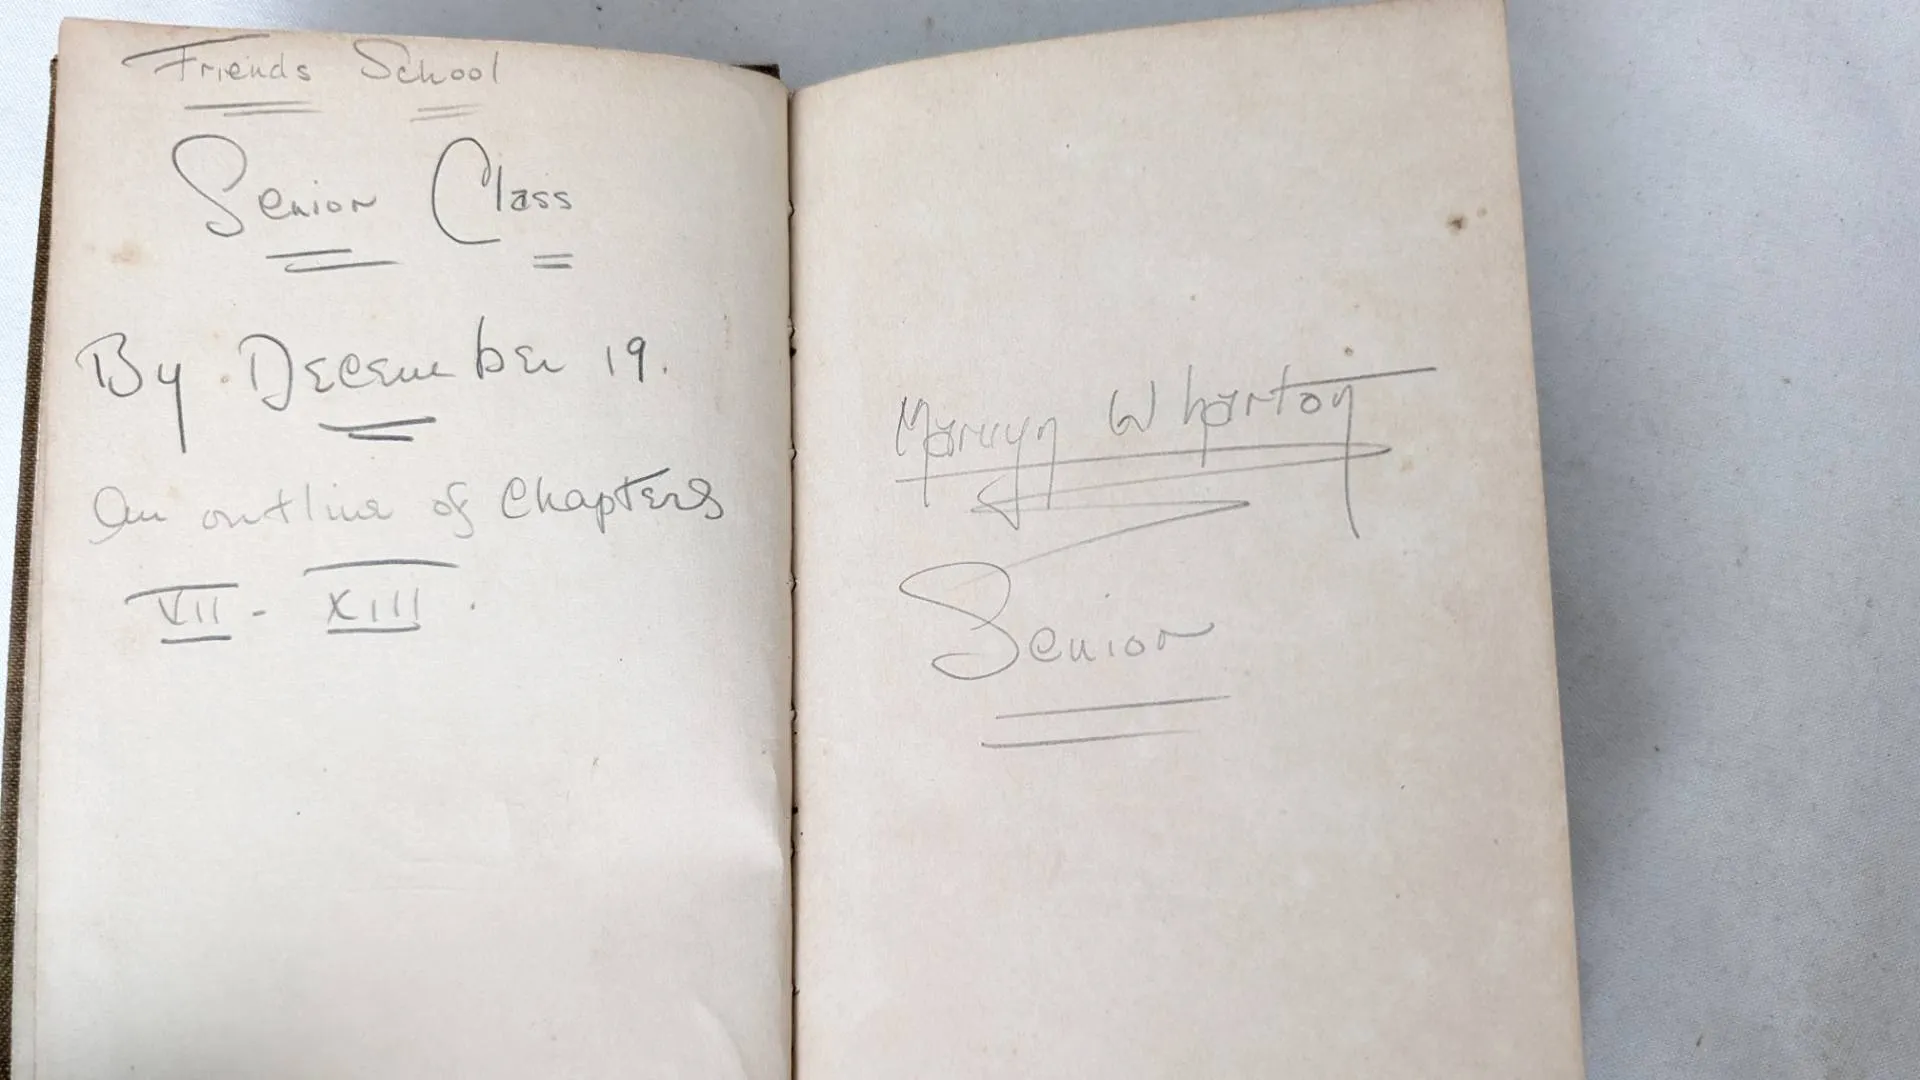 Friends School
Senior Class
By December 19.
An outline of Chapters
VII - XIII.
Marvyn Wharton
Senior